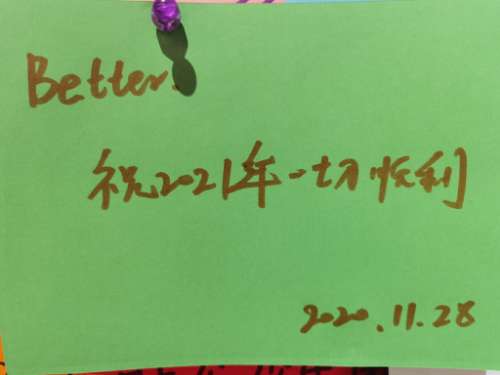 Better.
祝2021年一切顺利
2020.11.28